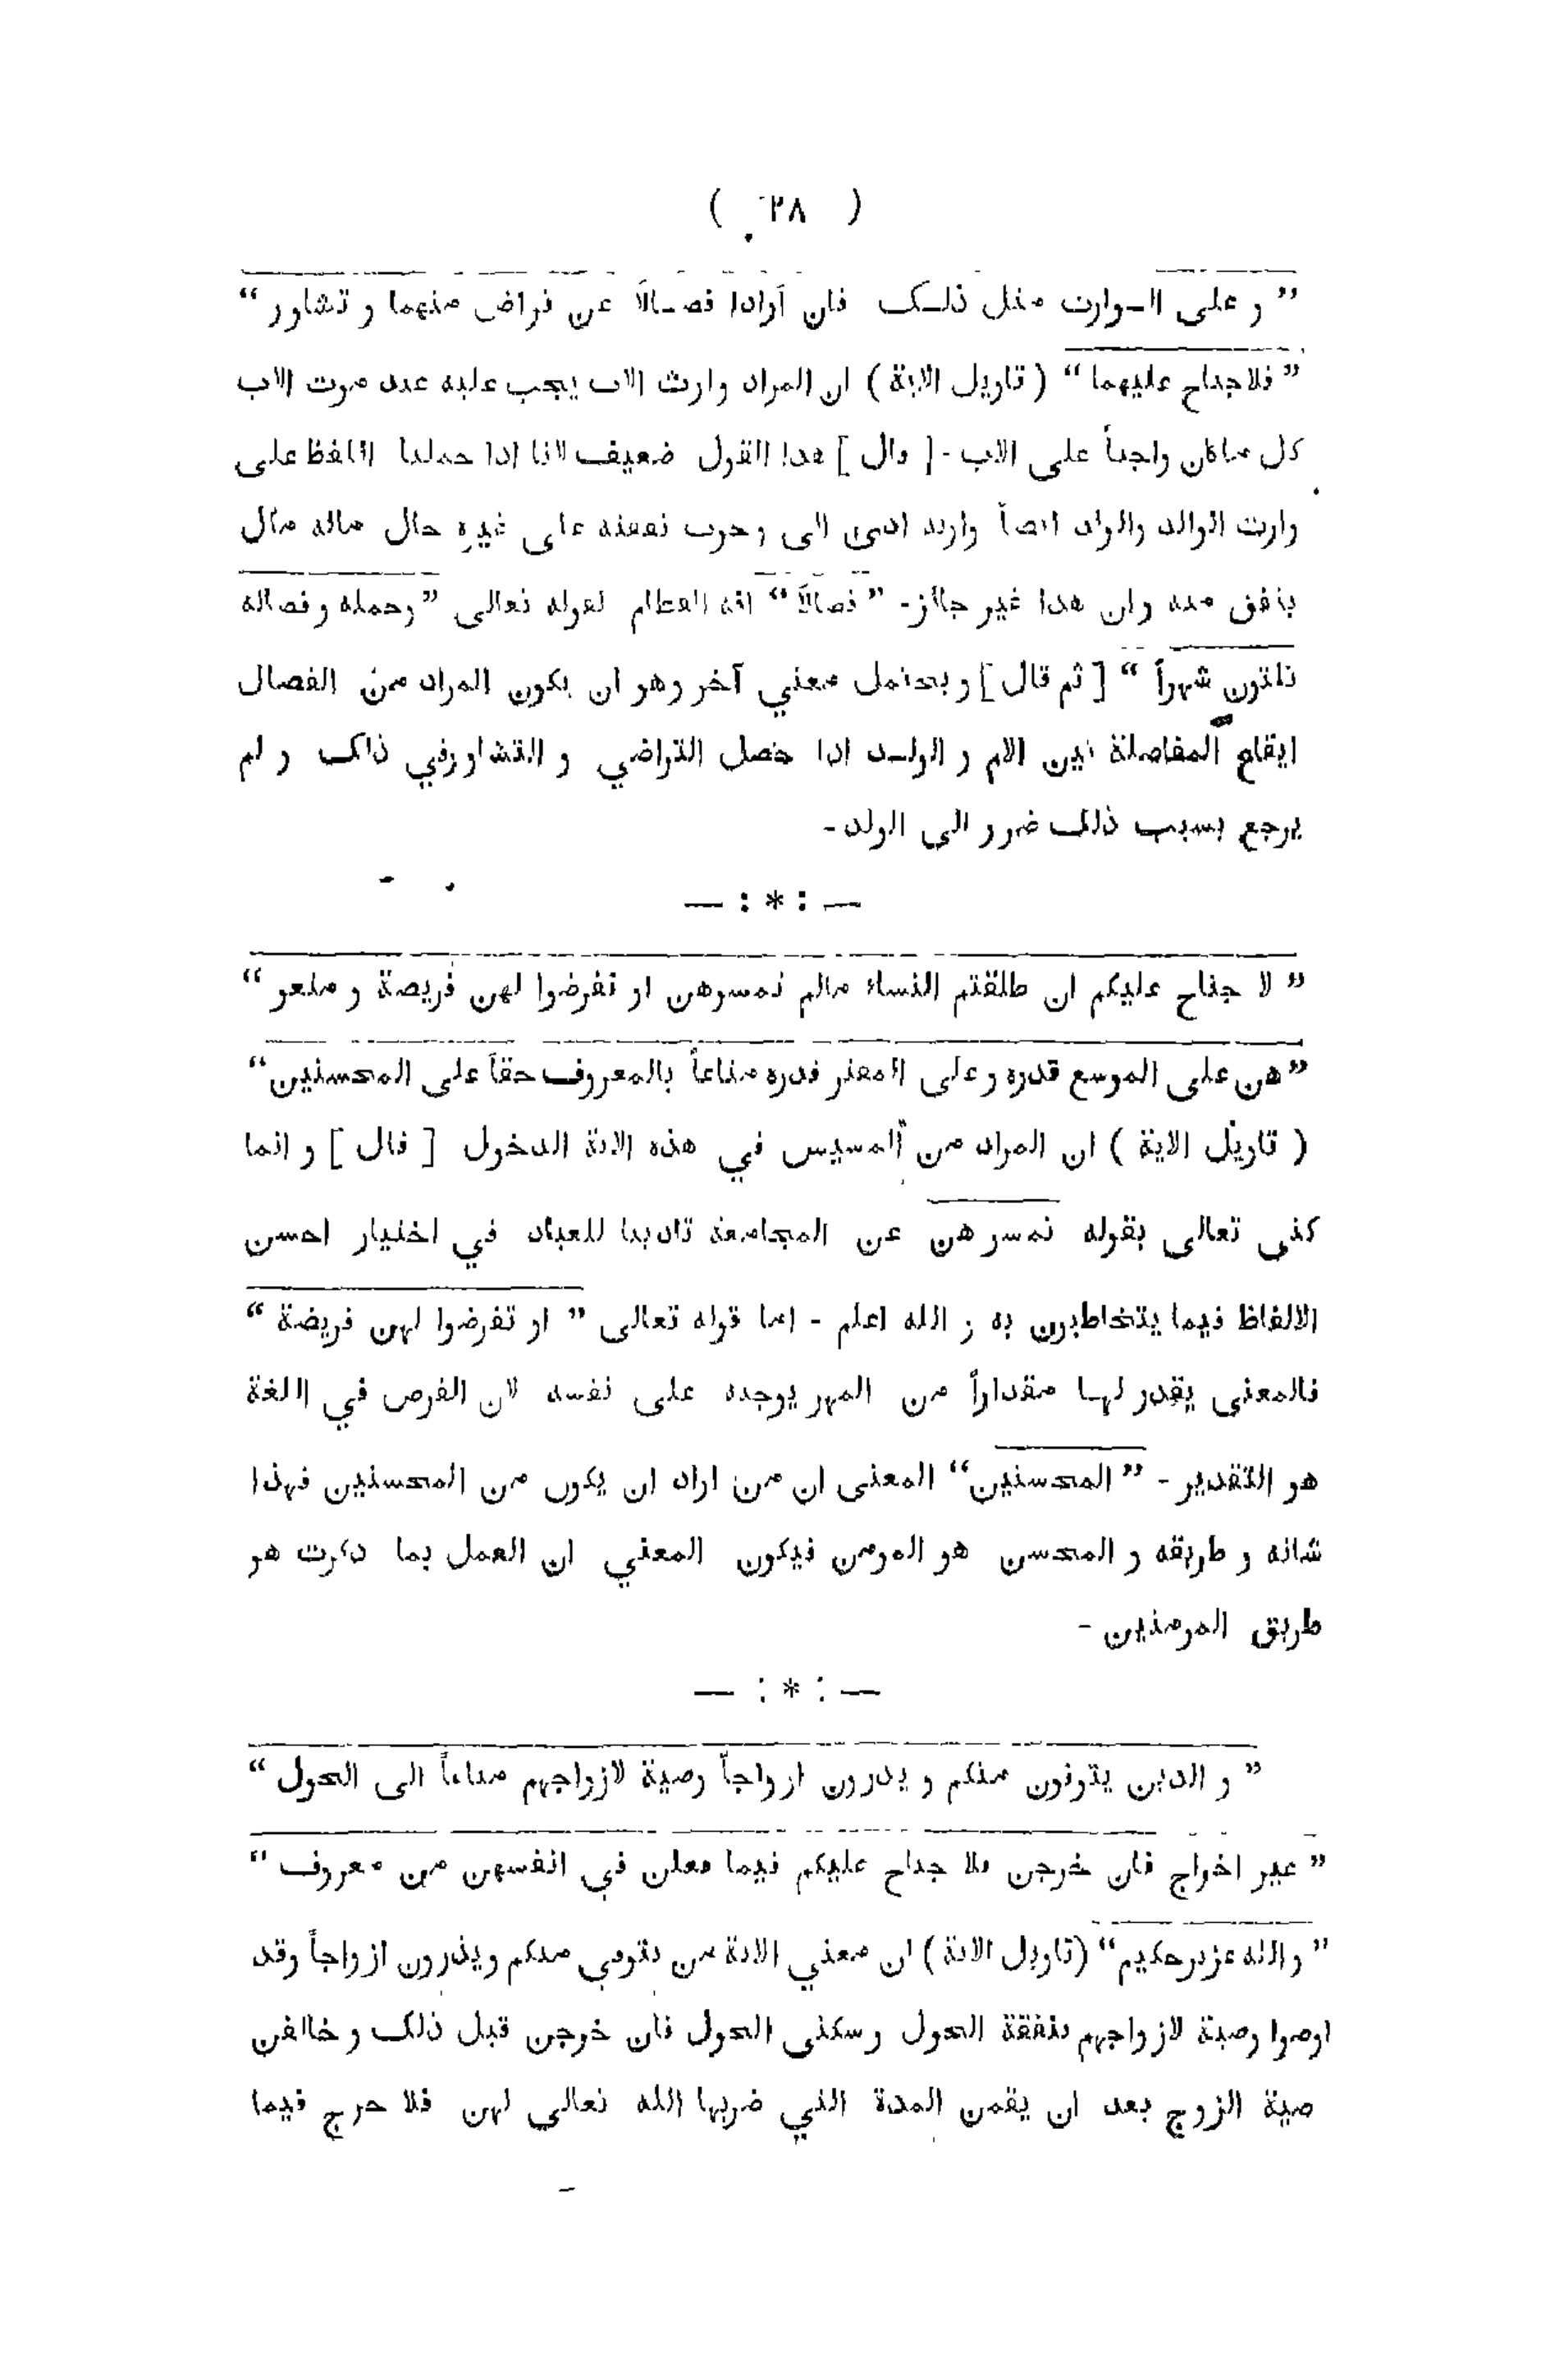 ( ٢٨ )
” و على الـوارث مثل ذلـك فان أرادا فصـالاً عن تراض منهما و تشاور “
” فلا جناح عليهما “ ( تاويل الاية ) ان المراد وارث الاب يجب عليه عند موت الاب
كل ما كان واجباً على الاب - [ قال ] هذا القول ضعيف لانا اذا حملنا اللفظ على
وارث الوالد والولد ايضاً وارثه ادى الى وجوب نفقته على غيره حال ماله مال
ينفق منه وان هذا غير جائز - ” فصالاً “ انه الفطام لقوله تعالى ” وحمله و فصاله
ثلثون شهراً “ [ ثم قال ] و يحتمل معني آخر وهو ان يكون المراد من الفصال
ايقاع المفاصلة بين الام و الولـد اذا حصل التراضي و التشاور في ذلك و لم
يرجع بسبب ذلك ضرر الى الولد -
— : * : —
” لا جناح عليكم ان طلقتم النساء مالم تمسوهن او تفرضوا لهن فريضة و متعو “
” هن على الموسع قدره و على المقتر قدره متاعاً بالمعروف حقاً على المحسنين “
( تاويل الاية ) ان المراد من المسيس في هذه الاية الدخول [ قال ] و انما
كنى تعالى بقوله تمسوهن عن المجامعة تاديبا للعباد في اختيار احسن
الالفاظ فيما يتخاطبون به و الله اعلم - اما قوله تعالى ” او تفرضوا لهن فريضة “
فالمعنى يقدر لهـا مقداراً من المهر يوجبه على نفسه لان الفرض في اللغة
هو التقدير - ” المحسنين “ المعنى ان من اراد ان يكون من المحسنين فهذا
شانه و طريقه و المحسن هو المومن فيكون المعني ان العمل بما ذكرت هو
طريق المومنين -
— : * : —
” و الذين يتوفون منكم و يذرون ازواجاً وصية لازواجهم متاعاً الى الحول “
” غير اخراج فان خرجن فلا جناح عليكم فيما فعلن في انفسهن من معروف “
” والله عزيز حكيم “ ( تاويل الاية ) ان معني الاية من يتوفي منكم ويذرون ازواجاً وقد
اوصوا وصية لازواجهم بنفقة الحول و سكنى الحول فان خرجن قبل ذلك و خالفن
صية الزوج بعد ان يقمن المدة التي ضربها الله تعالى لهن فلا حرج فيما